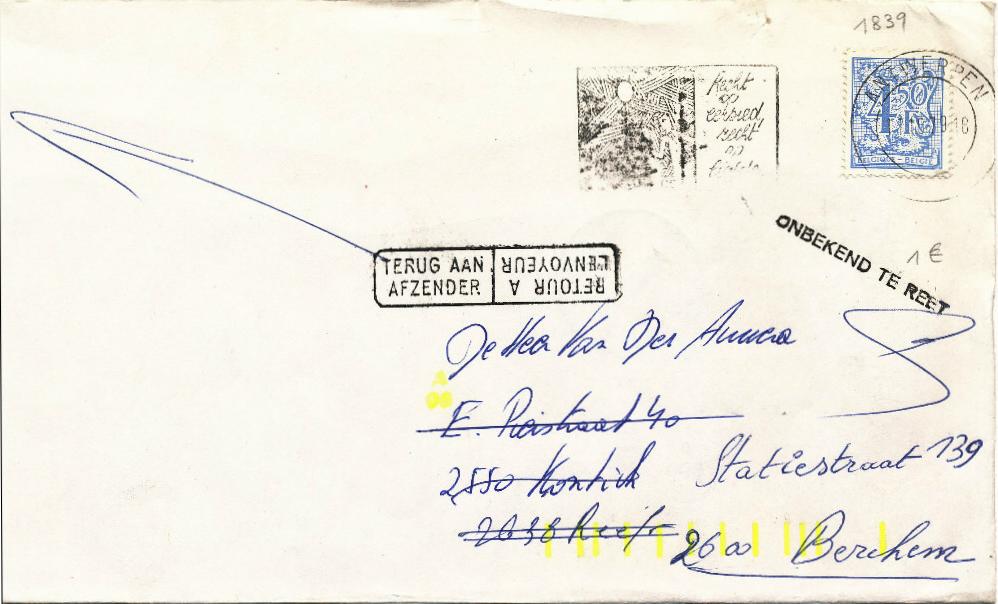 1839
ANTWERPEN
4,50
F
BELGIQUE - BELGIË
Recht
op
eerbied
recht
op
ONBEKEND TE REET
1 €
TERUG AAN
AFZENDER
RETOUR A
L'ENVOYEUR
De Heer Van Der
A
06
E. 40
2550 Kontich
Statiestraat 139
2638 Reet
2600 Berchem